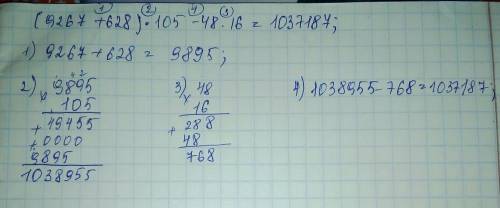 ① ② ④ ③
(9267 + 628) · 105 - 48 · 16 = 1037187;
1) 9267 + 628 = 9895;
2) × 9895
105
+ 49455
+ 0000
9895
1038955
3) × 48
16
+ 288
48
768
4) 1038955 - 768 = 1037187;